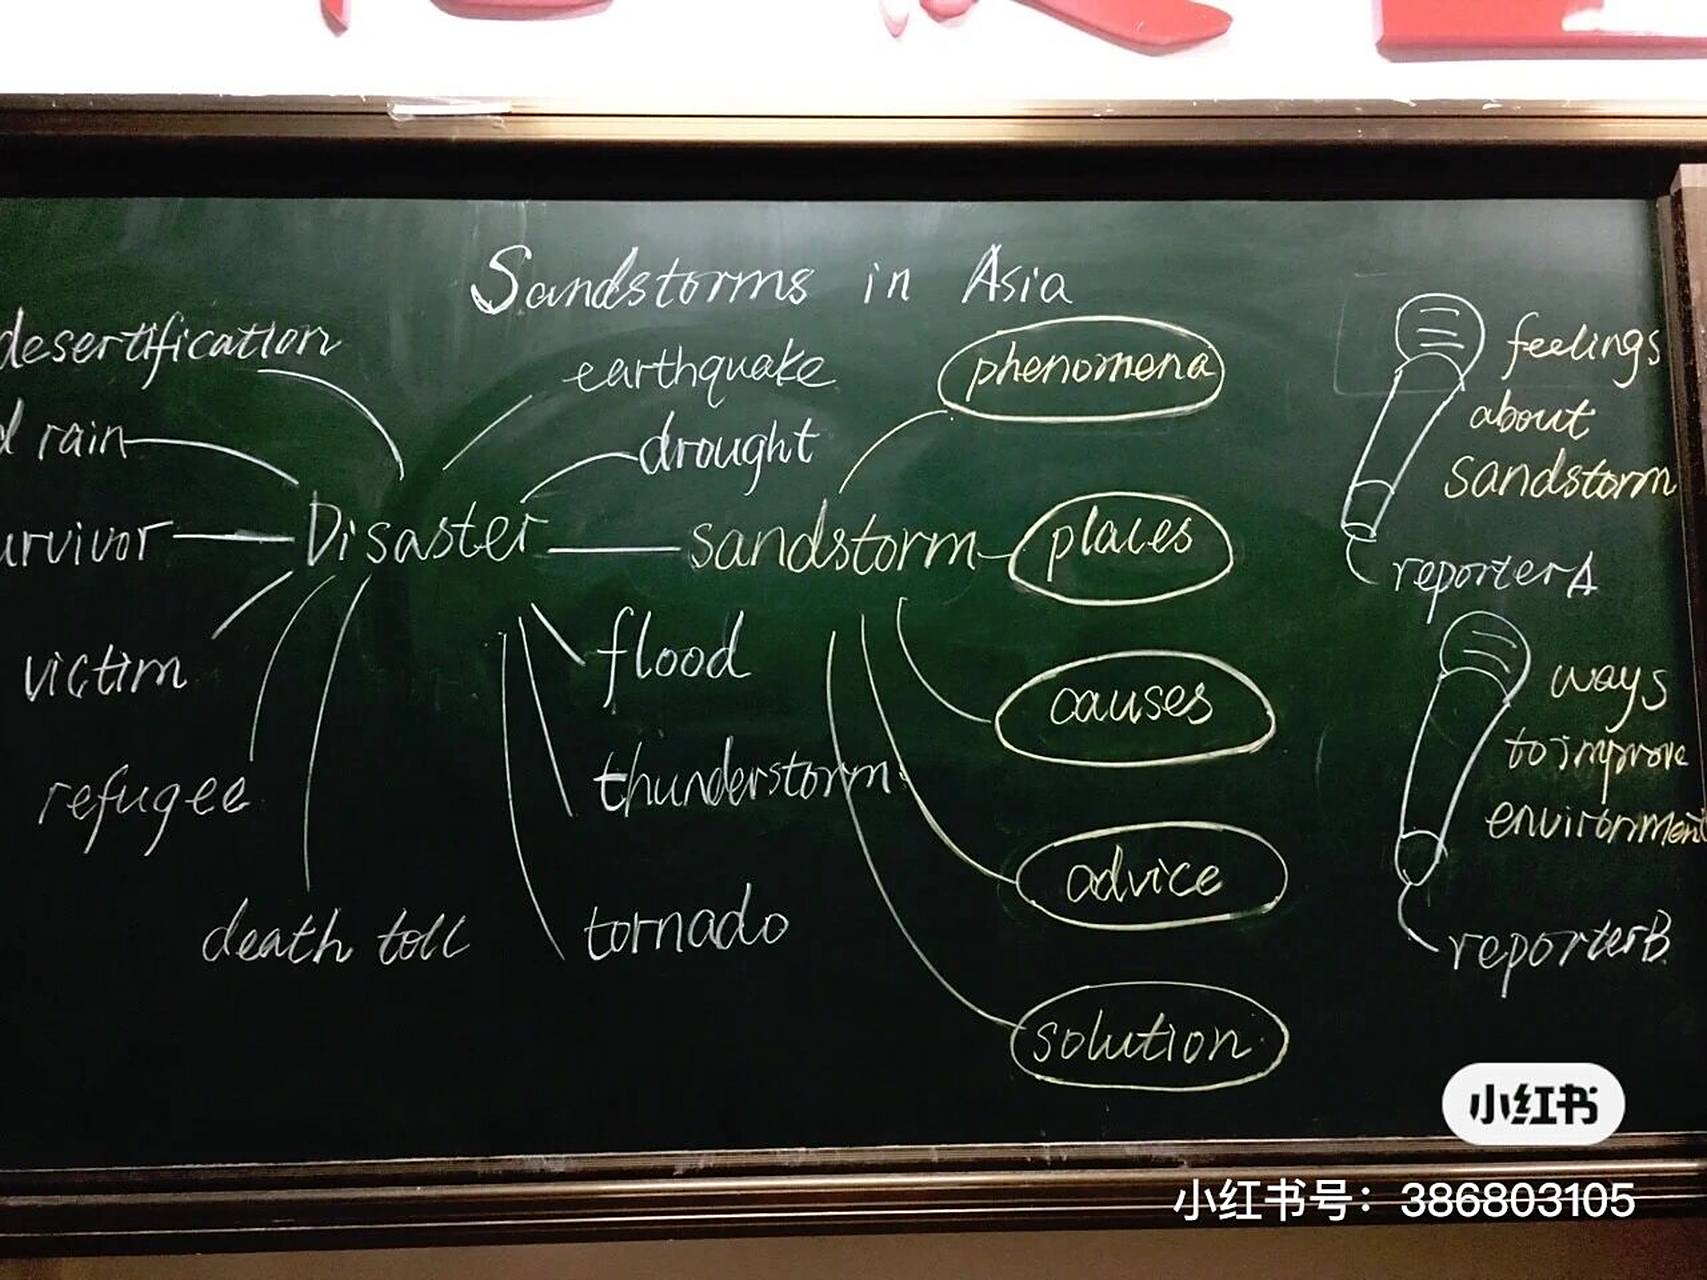 Sandstorms in Asia
desertification
rain
victim
refugee
death toll
Disaster
earthquake
drought
sandstorm
flood
thunderstorm
tornado
phenomena
places
causes
advice
solution
feelings
about
sandstorm
reporterA
ways
to improve
environment
reporterB
小红书
小红书号：386803105